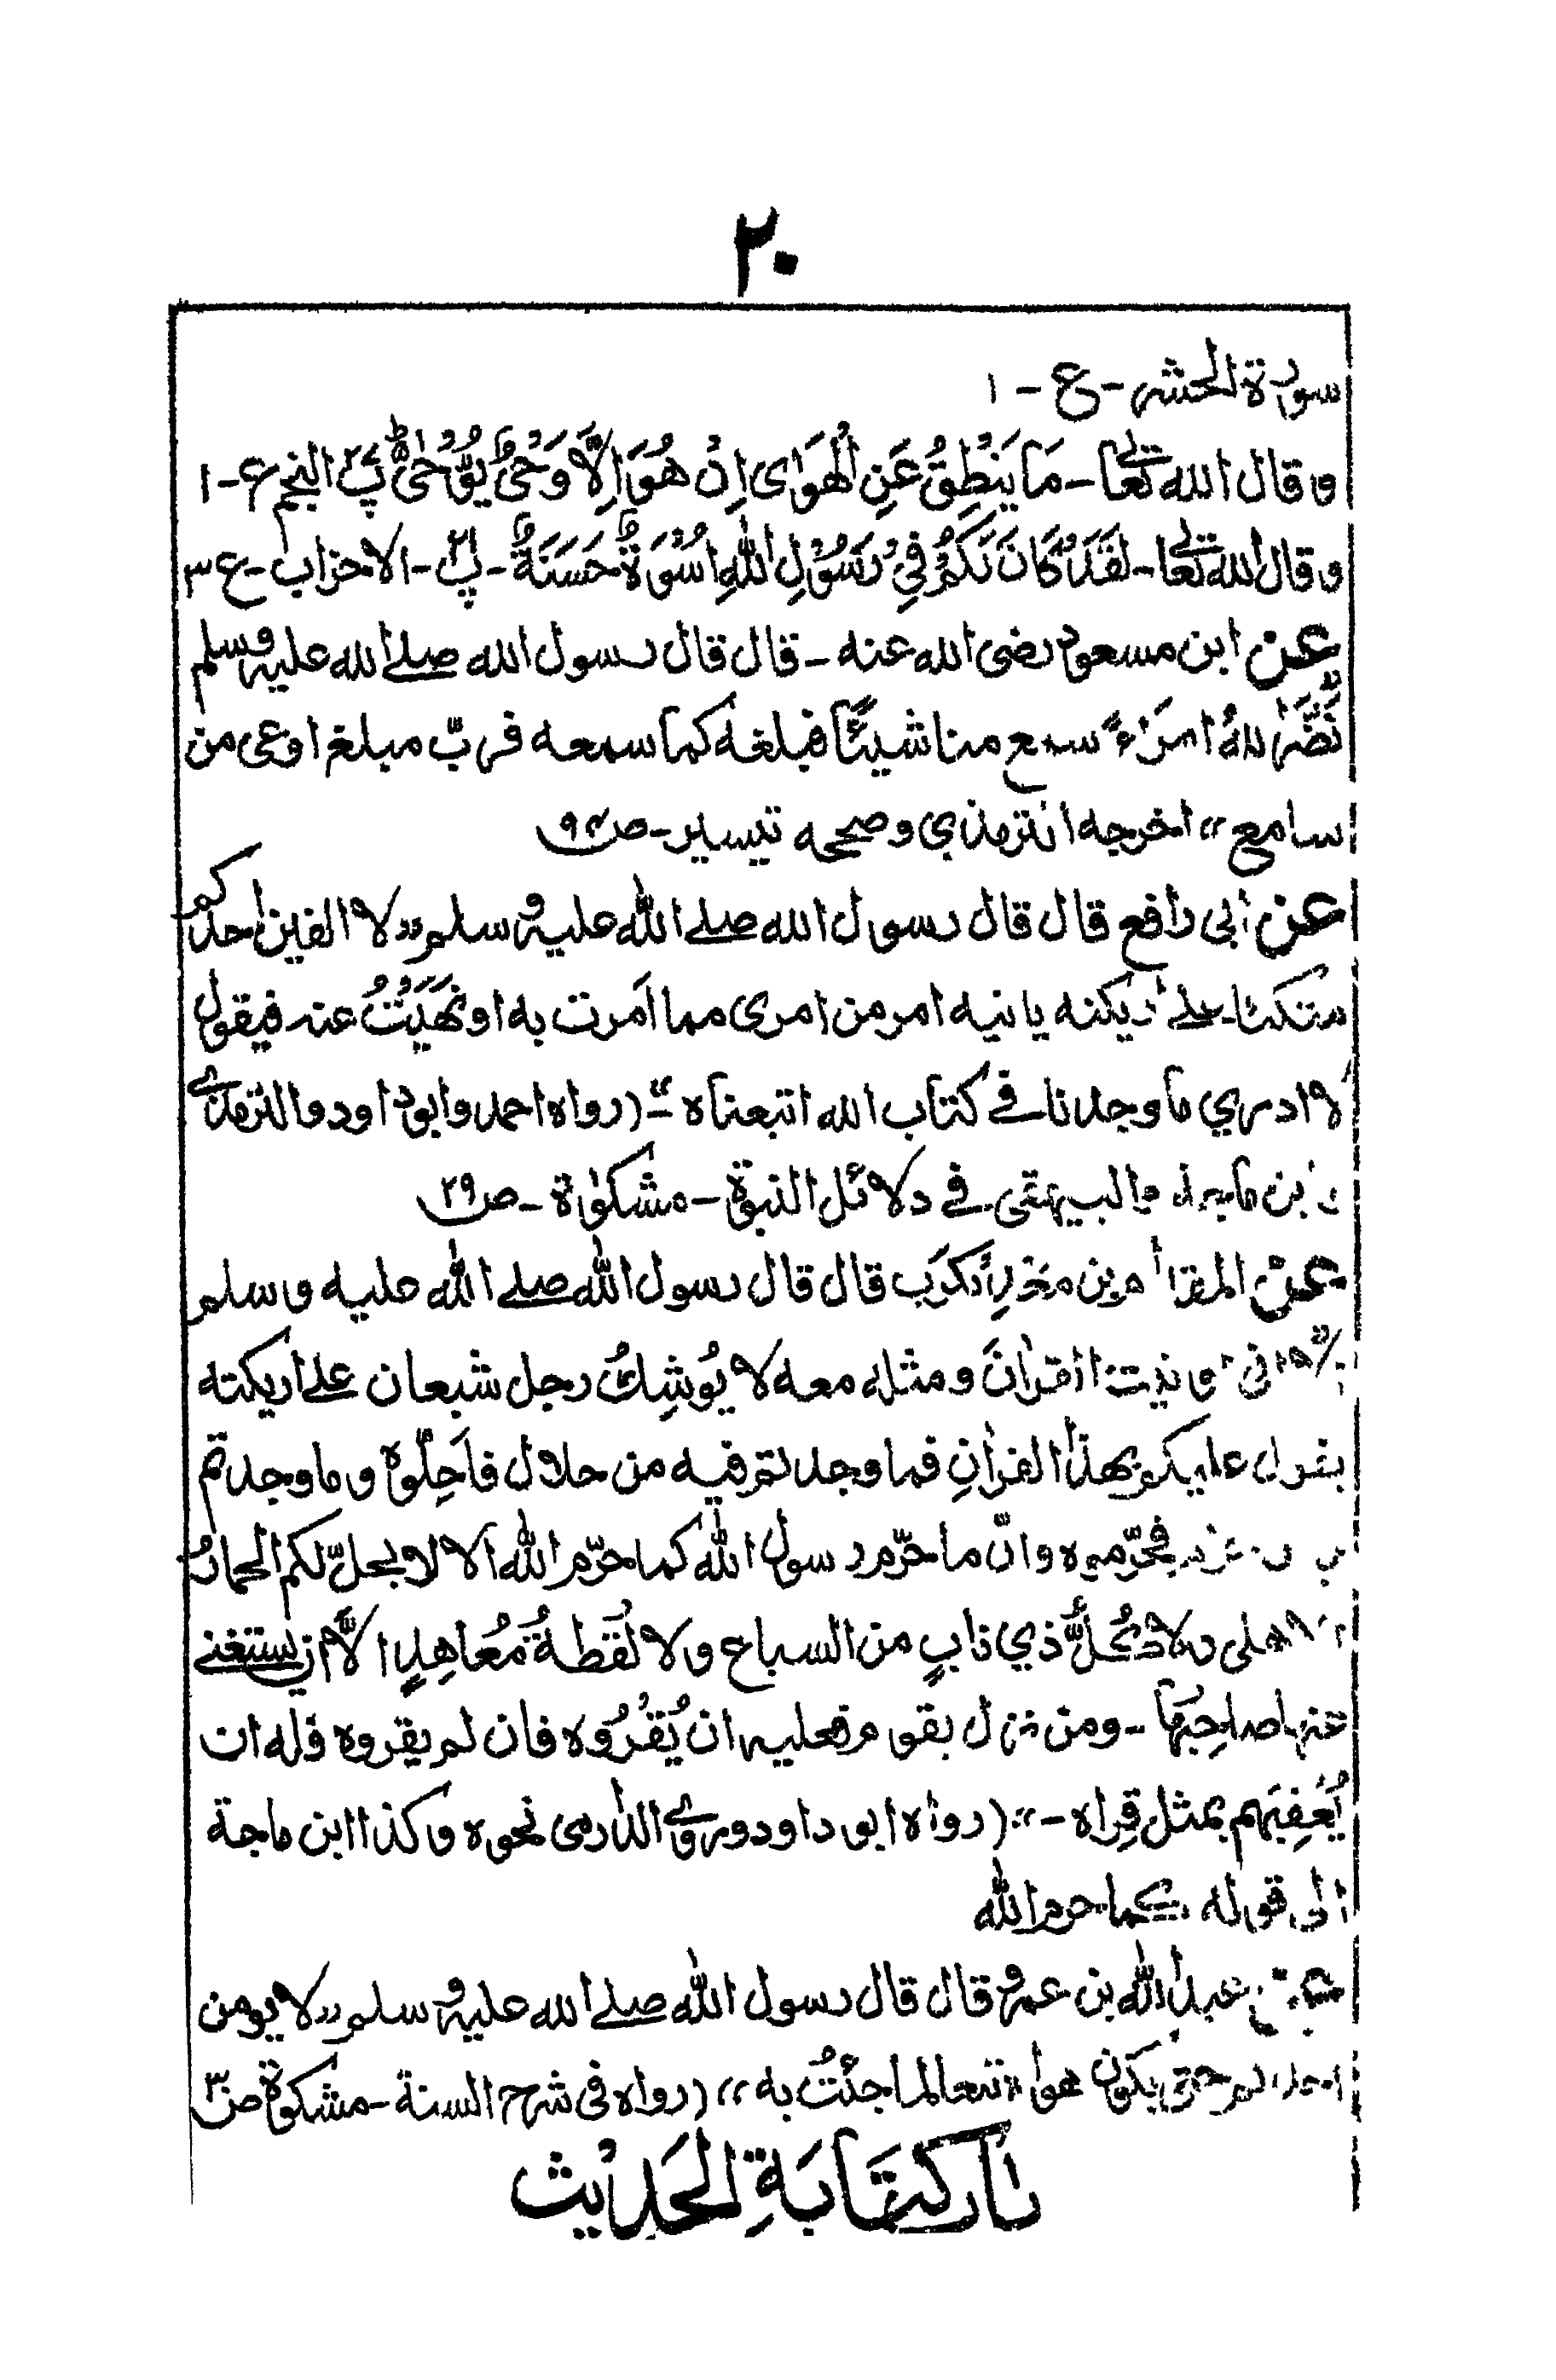 ٢٠
سورة الحشر - ع - ١
وقال الله تعالى - مَا يَنْطِقُ عَنِ الْهَوٰى اِنْ هُوَ اِلَّا وَحْيٌ يُّوْحٰى پ٢٧ النجم ع - ١
وقال الله تعالى - لَقَدْ كَانَ لَكُمْ فِيْ رَسُوْلِ اللهِ اُسْوَةٌ حَسَنَةٌ - پ٢١ - الاحزاب - ع ٣
عن ابن مسعود رضى الله عنه - قال قال رسول الله صلے الله عليه وسلم
نَضَّرَ اللهُ امرَءً سمع منا شيئًا فبلغه كما سمعه فربّ مبلغ اوعى من
سامع ،، اخرجه الترمذي وصححه تيسير - ص
عن ابى رافع قال قال رسول الله صلے الله عليه وسلم ،، لا الفين احدكم
متكئا على اريكته ياتيه امر من امرى مما اَمرت به او نَهَيْتُ عنه فيقول
لا ادري ما وجدنا فے كتاب الله اتبعناه ،، - (رواه احمد وابوداود والترمذے
وابن ماجة والبيهقى فے دلائل النبوة - مشكوٰة - ص٢٩
عن المقدام بن معديكَرَب قال قال رسول الله صلے الله عليه وسلم
الا انى اوتيت القراٰنَ ومثله معه لا يُوْشِكُ رجل شبعان علے اريكته
يقول عليكم بهذا القراٰنِ فما وجدتم فيه من حلال فاَحِلّوه وما وجدتم
فيه من حرام فحَرّموه وانّ ما حرّم رسول الله كما حرّم الله الا لا يحلّ لكم الحمارُ
الاهلى ولا كُلُّ ذي نابٍ من السباع ولا لُقَطةُ مُعَاهِدٍ الّا ان يستغنے
عنها صاحِبُهَا - ومن نزل بقوم فعليهم ان يُقْرُوْه فان لم يقروه فله ان
يُعْقِبَهم بمثل قِراه - ،، (رواه ابو داود وروے الدارمى نحوه وكذا ابن ماجة
الى قوله كما حرم الله
عن عبد الله بن عمرو قال قال رسول الله صلے الله عليه وسلم ،، لا يومن
احدكم حتى يكون هواه تبعا لما جئتُ به ،، (رواه فى شرح السنة - مشكوة ص٣٠
كِتَابَةِ الحَدِيْث